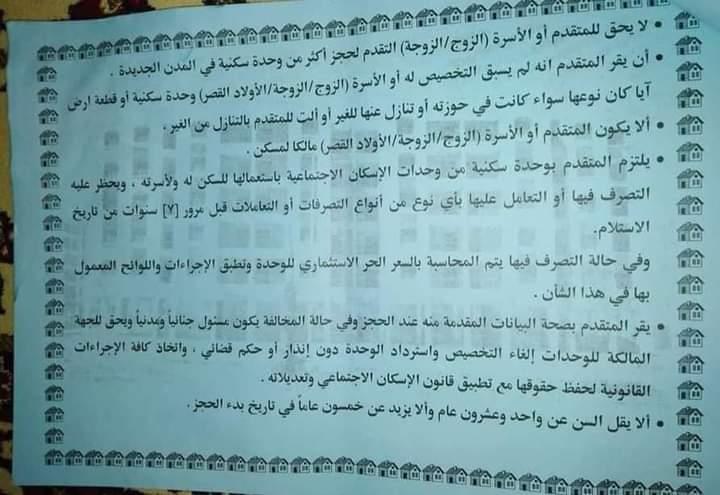 • لا يحق للمتقدم أو الأسرة (الزوج/الزوجة) التقدم لحجز أكثر من وحدة سكنية في المدن الجديدة .
• أن يقر المتقدم انه لم يسبق التخصيص له أو الأسرة (الزوج/الزوجة/الأولاد القصر) وحدة سكنية أو قطعة ارض
آيا كان نوعها سواء كانت في حوزته أو تنازل عنها للغير أو ألت للمتقدم بالتنازل من الغير .
• ألا يكون المتقدم أو الأسرة (الزوج/الزوجة/الأولاد القصر) مالكا لمسكن .
• يلتزم المتقدم بوحدة سكنية من وحدات الإسكان الاجتماعية باستعمالها للسكن له ولأسرته ، ويحظر عليه
التصرف فيها أو التعامل عليها بأي نوع من أنواع التصرفات أو التعاملات قبل مرور [٧] سنوات من تاريخ
الاستلام.
وفي حالة التصرف فيها يتم المحاسبة بالسعر الحر الاستثماري للوحدة وتطبق الإجراءات واللوائح المعمول
بها في هذا الشأن .
• يقر المتقدم بصحة البيانات المقدمة منه عند الحجز وفي حالة المخالفة يكون مسئول جنائياً ومدنياً ويحق للجهة
المالكة للوحدات إلغاء التخصيص واسترداد الوحدة دون إنذار أو حكم قضائي ، واتخاذ كافة الإجراءات
القانونية لحفظ حقوقها مع تطبيق قانون الإسكان الاجتماعي وتعديلاته .
• ألا يقل السن عن واحد وعشرون عام وألا يزيد عن خمسون عاماً في تاريخ بدء الحجز .